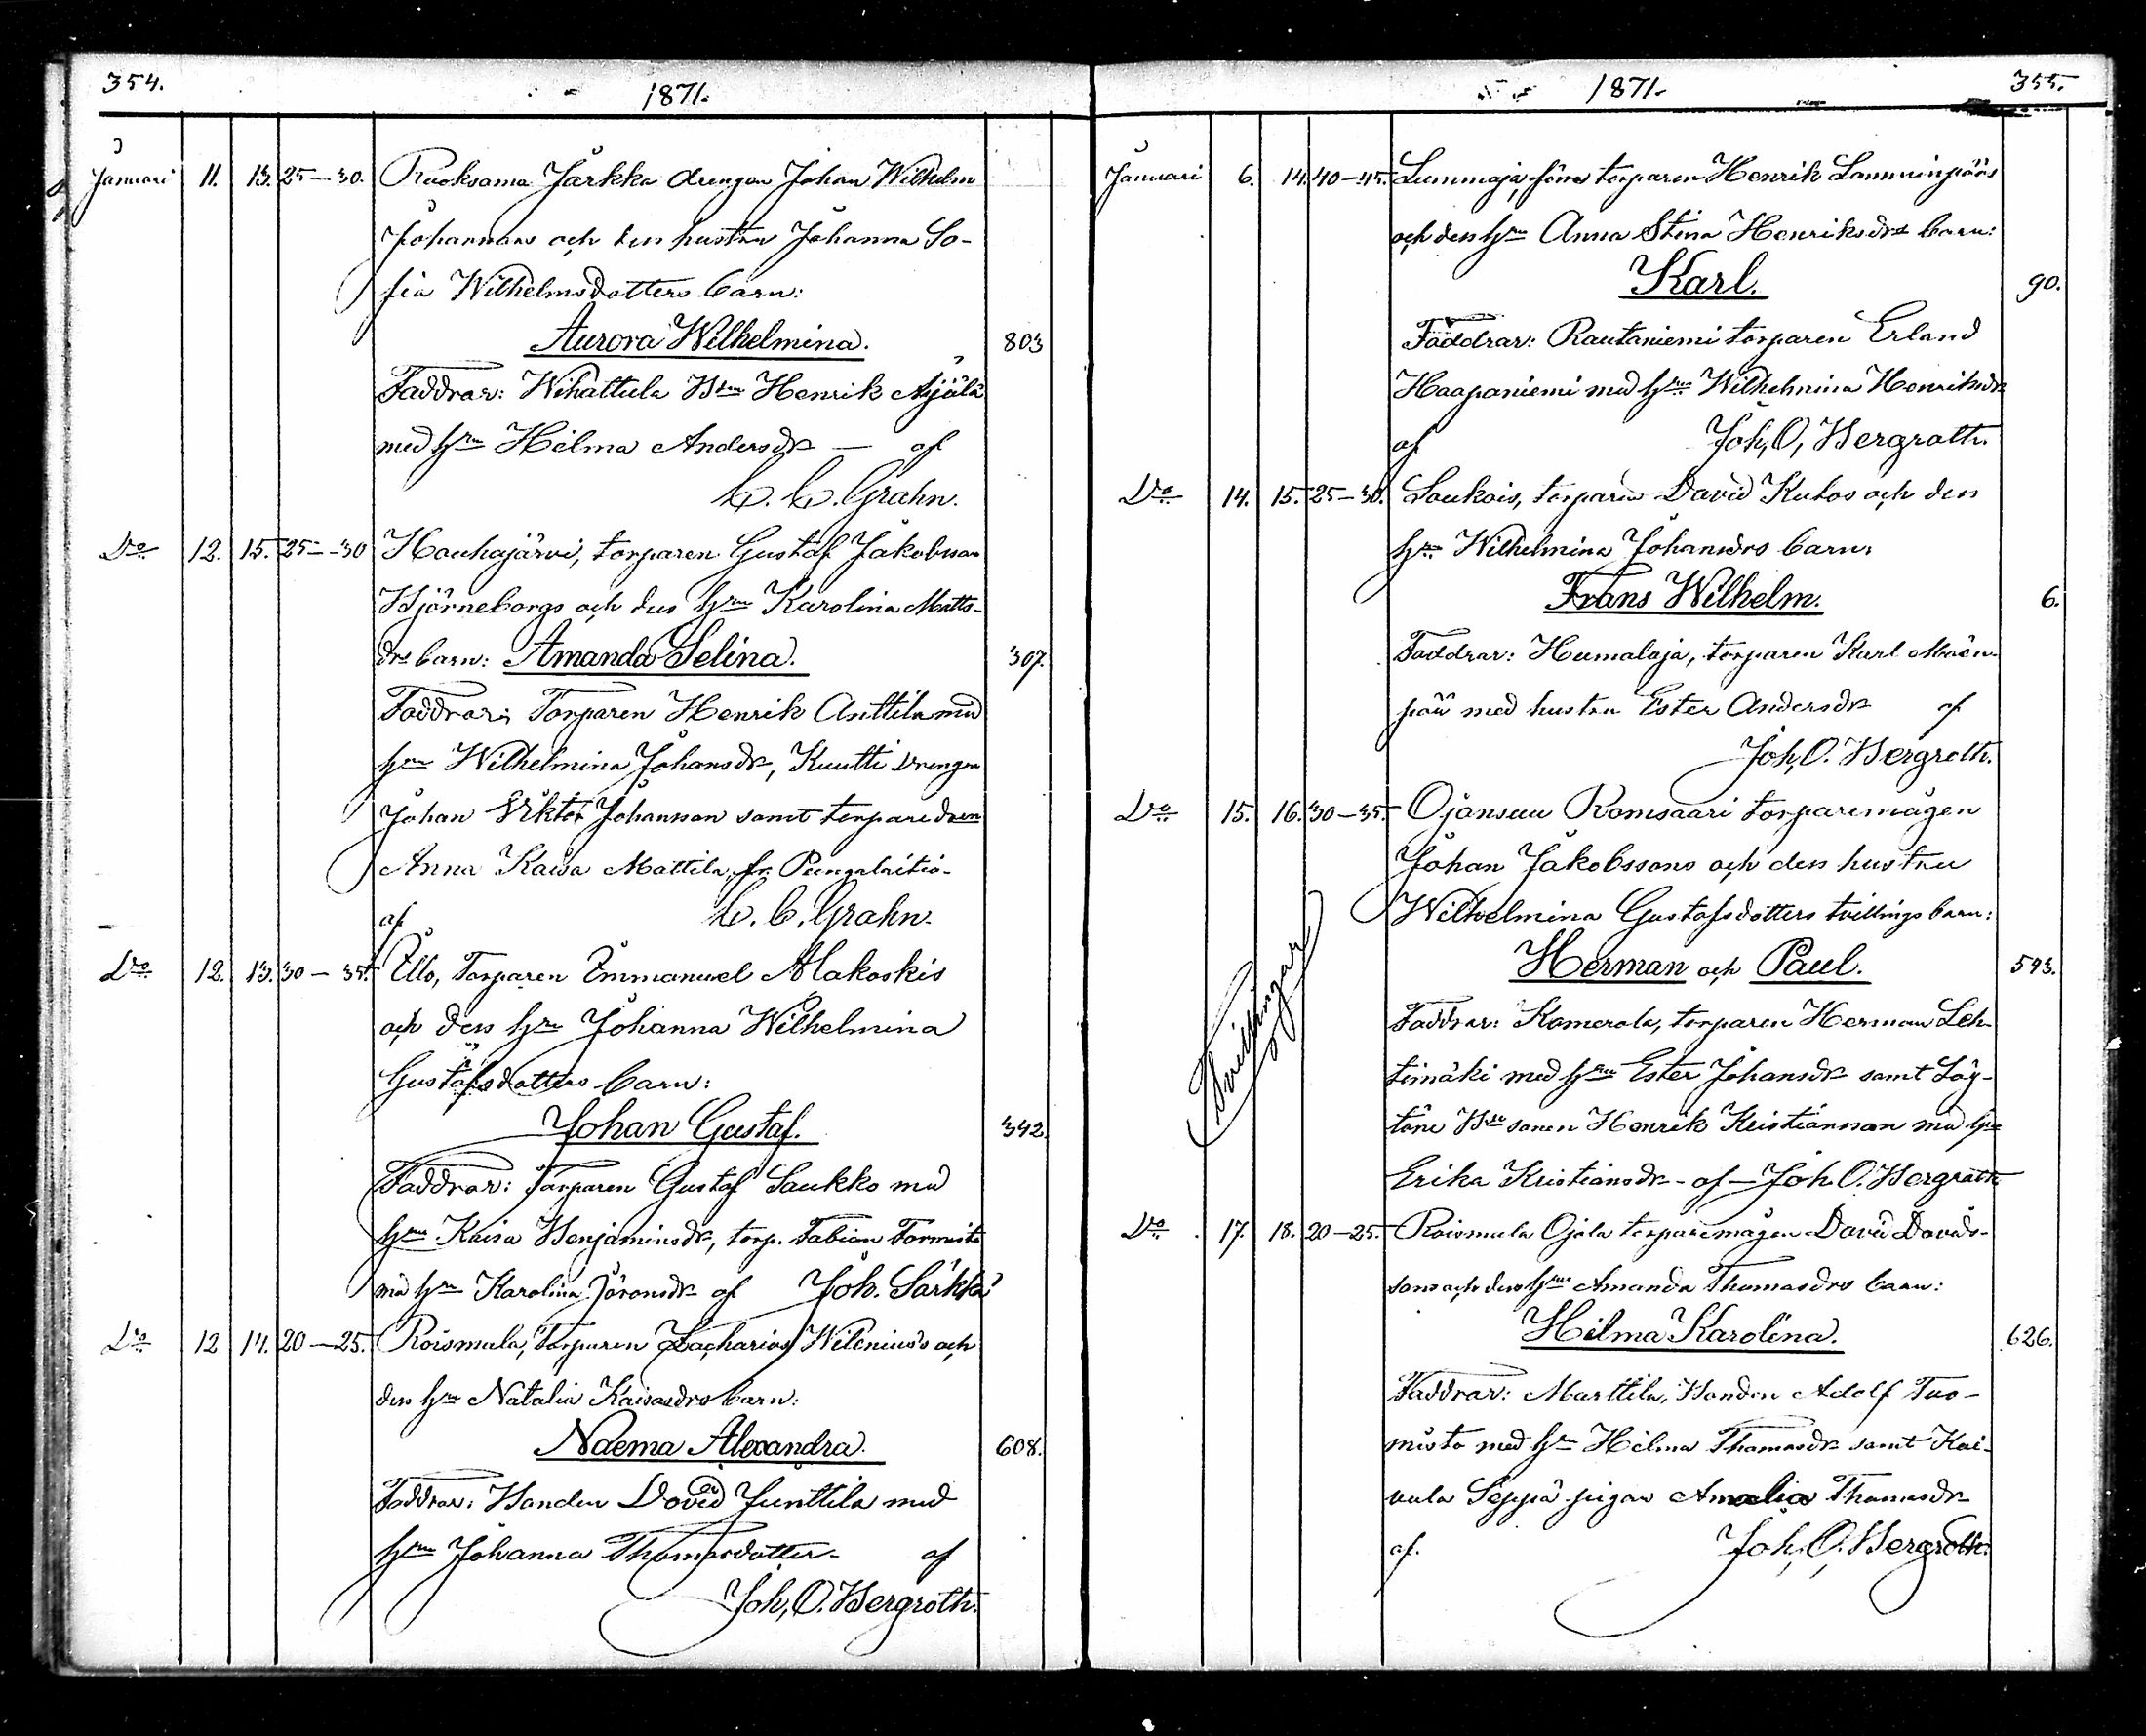 354.
1871.
Januari 11. 13. 25–30. Ruoksama Järkka drengen Johan Wilhelm
Johanssons och dess hustru Johanna So-
fia Wilhelmsdotters barn:
Aurora Wilhelmina. 803
Faddrar: Wihattula Bdn Henrik Äijälä
med hrn Hilma Andersdr — af
C. C. Grahn.
Do 12. 15. 25–30 Houhajärvi, torparen Gustaf Jakobsson
Björneborgs och dess hrn Karolina Matts-
drs barn: Amanda Selina. 307.
Faddrar: Torparen Henrik Anttila med
hrn Wilhelmina Johansdr, Kuutti drengen
Johan Viktor Johansson samt torparedren
Anna Kaisa Mattila, fr.
af C. C. Grahn.
Do 12. 13. 30–35. Illo, Torparen Emmanuel Alakoskis
och dess hru Johanna Wilhelmina
Gustafsdotters barn:
Johan Gustaf. 342.
Faddrar: Torparen Gustaf Saukko med
hrn Kaisa Benjaminsdr, torp. Fabian Tormistö
med hrn Karolina Göransdr af Joh. Särkkä
Do 12 14. 20–25. Roismala, Torparen Zacharias Wilenius's och
dess hrn Natalia Kaisasdrs barn:
Naema Alexandra. 608.
Faddrar: Bonden David Junttila med
hrn Johanna Thomasdotter - af
Joh, O. Bergroth.
1871.
355.
Januari 6. 14. 40–45. Lummaja, förra torparen Henrik Lamminpääs
och dess hrn Anna Stina Henriksdrs barn:
Karl. 90.
Faddrar: Rautaniemi torparen Erland
Haapaniemi med hrn Wilhelmina Henriksdr
af Joh, O, Bergroth.
Do 14. 15. 25–30. Soukois, torparen David Kulos och dess
hrn Wilhelmina Johansdrs barn:
Frans Wilhelm. 6.
Faddrar: Humaloja, torparen Karl Mäen-
pää med hustru Ester Andersdr af
Joh, O. Bergroth.
Do 15. 16. 30–35. Ojansuu Romsaari torparemågen
Johan Jakobssons och dess hustru
Wilhelmina Gustafsdotters tvillings barn:
Tvillingar
Herman och Paul. 593.
Faddrar: Komerola, torparen Herman Leh-
timäki med hrn Ester Johansdr samt Löy-
täne Bde sonen Henrik Kristiansson med hru
Erika Kristiansdr - af - Joh. O. Bergroth
Do 17. 18. 20–25. Roismala Ojala torparemågen David Davids-
sons och dess hrn Amanda Thomasdrs barn:
Hilma Karolina. 626.
Faddrar: Marttila, Bonden Adolf Tuo-
misto med hrn Hilma Thomasdr samt Kai-
vula Seppä pigan Amalia Thomasdr
af. Joh, O. Bergroth.